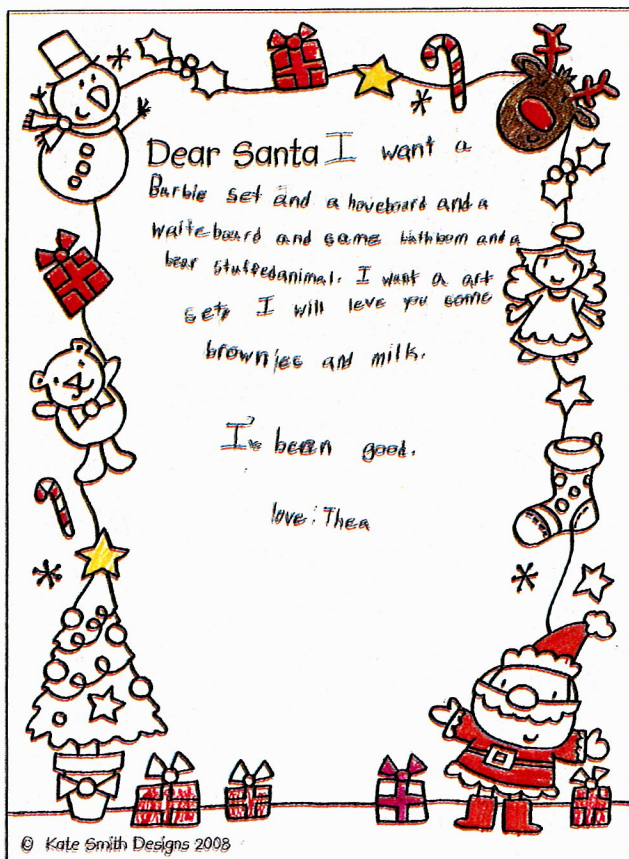 Dear Santa I want a
Barbie set and a hoveboard and a
waiteboard and some bathbom and a
bear stuffedanimal. I want a art
set. I will leve you some
brownies and milk.
I've been good.
love: Thea
© Kate Smith Designs 2008